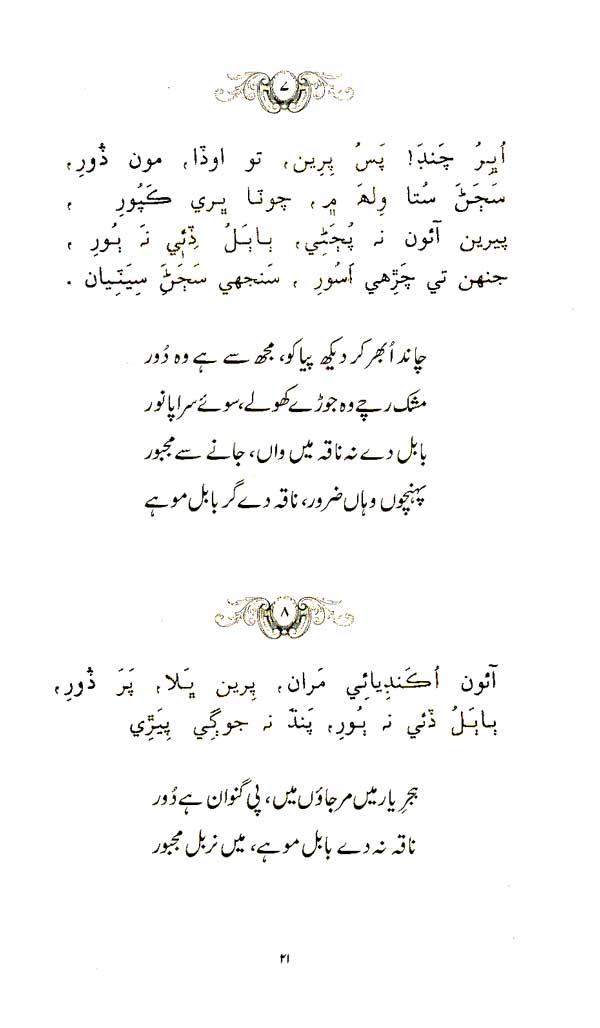 ۷
اُڀِرُ چَنڊَ! پَسُ پِرِين، تو اوڏا، مون ڏُورِ،
سَڄَڻَ سُتا وِلهَ ۾، چوٽا ڀري کَپُورِ ،
پيرين آئون نہ پُڄَڻِي، ٻاٻَلُ ڏِئي نَہ ٻُورِ ،
جنهن تي چَڙِهي اَسُورِ ، سَنجهي سَڄَڻَ سيٽِيان .
چاند اُبھر کر دیکھ پیا کو، مجھ سے ہے وہ دُور
مشک رچے وہ جوڑے کھولے، سوئے سراپا نور
بابل دے نہ ناقہ میں واں، جانے سے مجبور
پہنچوں وہاں ضرور، ناقہ دے گر بابل موہے
۸
آئون اُڪَنڊِيائِي مَران، پِرين ڀَلا، پَرَ ڏُورِ،
ٻاٻَلُ ڏئي نہ ٻُورِ، پَنڌَ نہ جوڳِي پِيَڙِي
ہجرِ یار میں مر جاؤں میں، پی گنوان ہے دُور
ناقہ نہ دے بابل موہے، میں نربل مجبور
۲۱